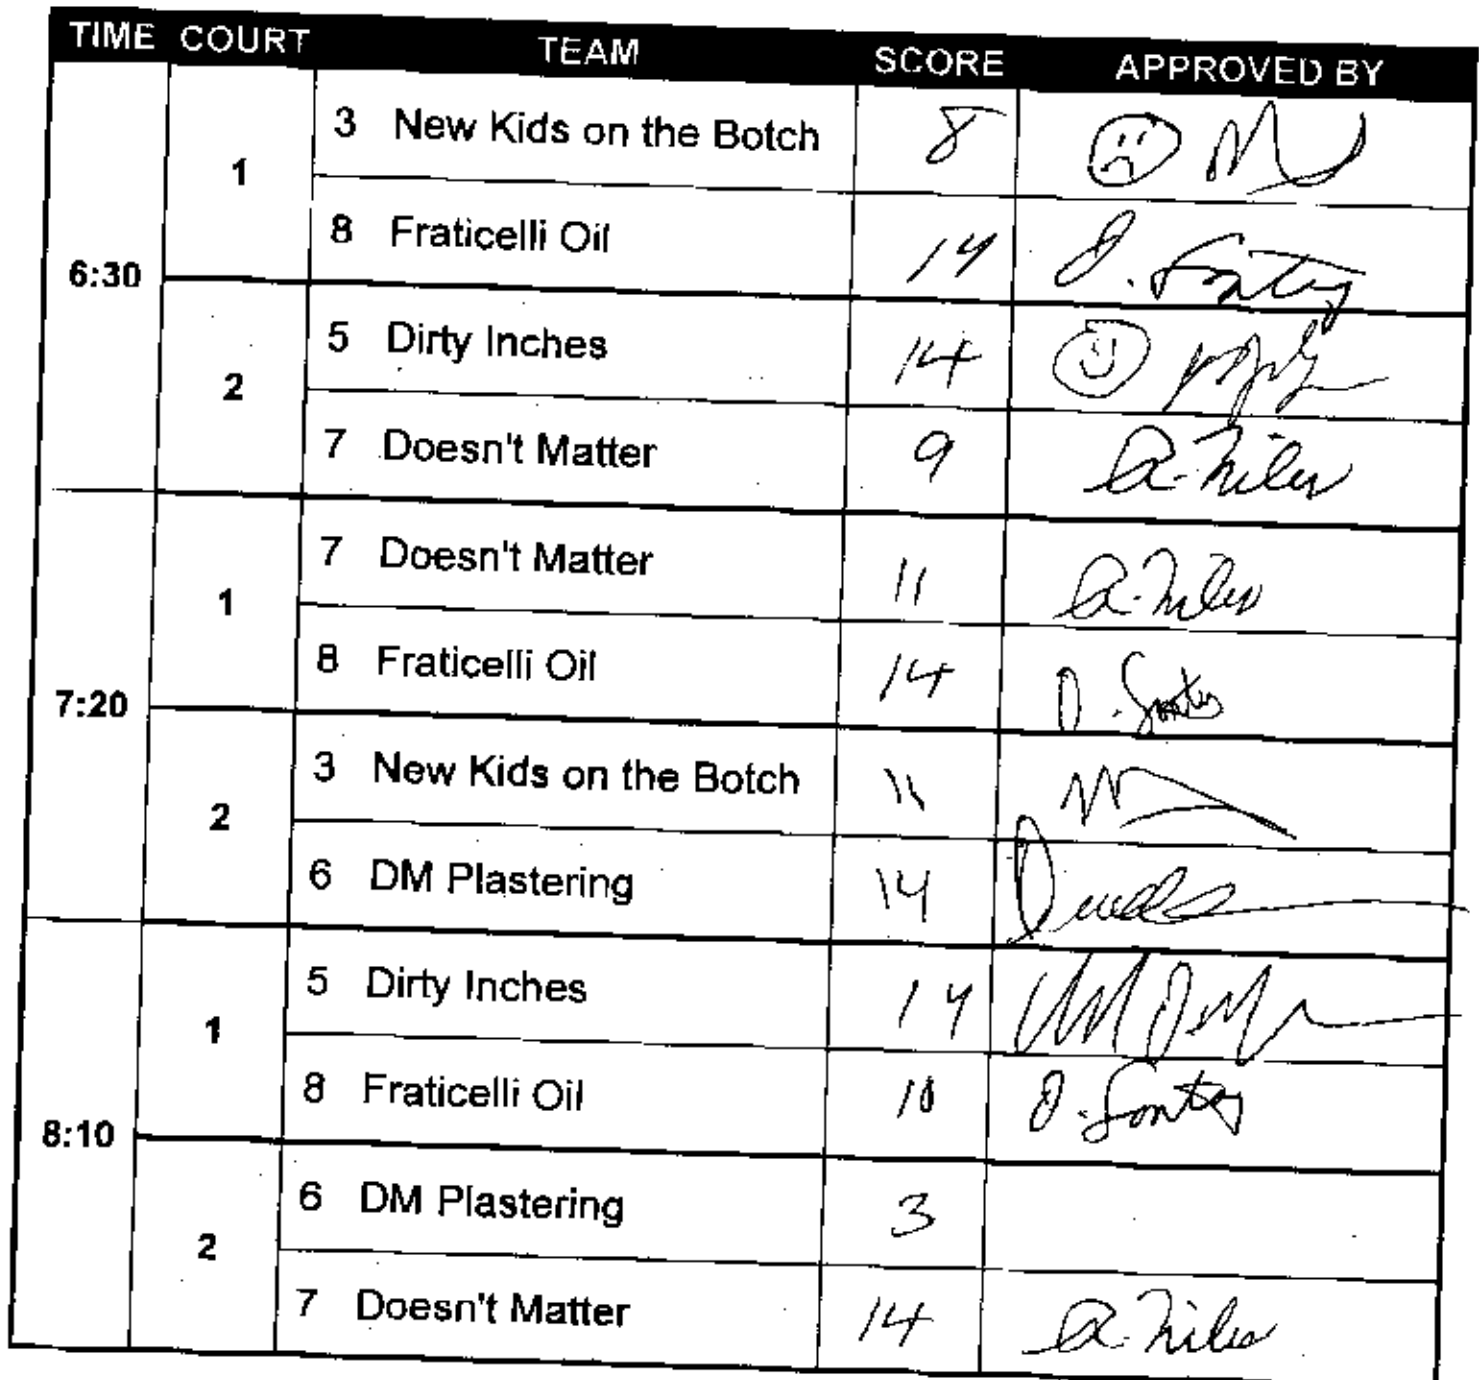 TIME COURT TEAM SCORE APPROVED BY
6:30
1
3 New Kids on the Botch 8
8 Fraticelli Oil 14
2
5 Dirty Inches 14
7 Doesn't Matter 9 a. Niles
7:20
1
7 Doesn't Matter 11 a. Niles
8 Fraticelli Oil 14
2
3 New Kids on the Botch 11
6 DM Plastering 14
8:10
1
5 Dirty Inches 14
8 Fraticelli Oil 10
2
6 DM Plastering 3
7 Doesn't Matter 14 a. Niles